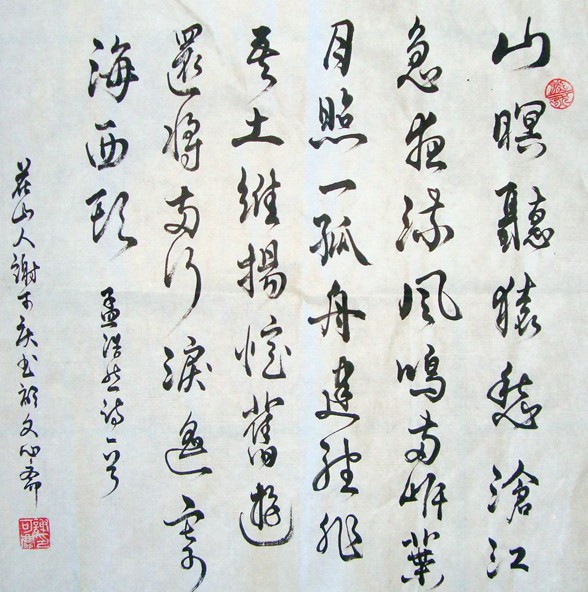 山暝聽猿愁滄江
急夜流風鳴兩岸葉
月照一孤舟建德非
吾土維揚憶舊遊
還將兩行淚遙寄
海西頭
孟浩然詩一首
山人謝可庆书文心斋